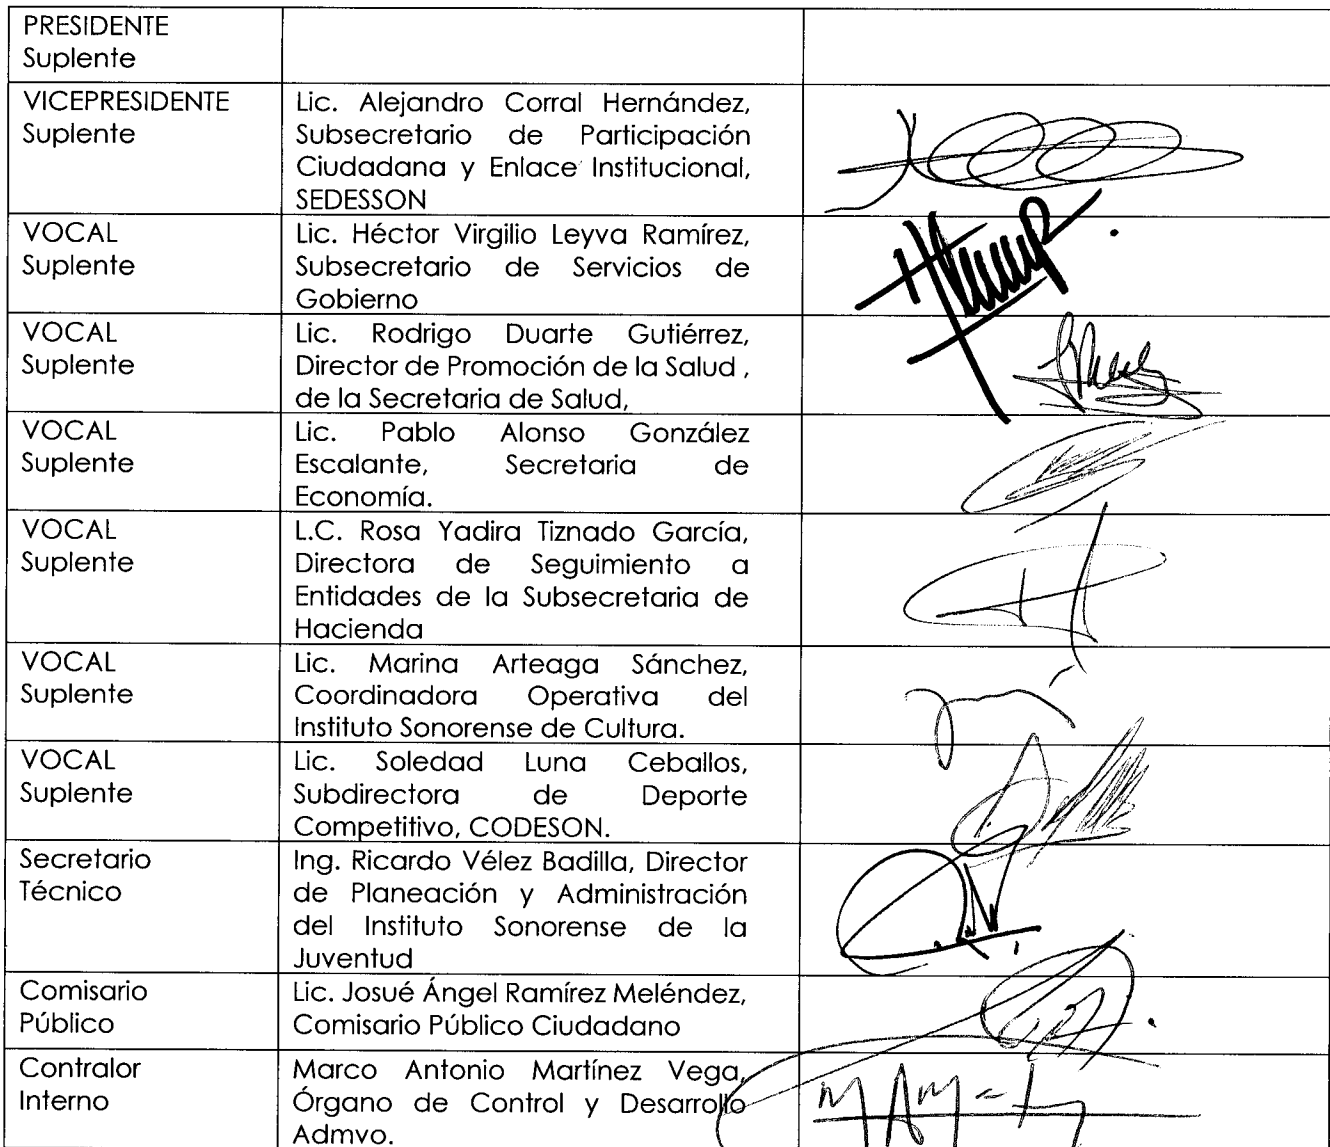 PRESIDENTE
Suplente
VICEPRESIDENTE
Suplente
Lic. Alejandro Corral Hernández,
Subsecretario de Participación
Ciudadana y Enlace Institucional,
SEDESSON
VOCAL
Suplente
Lic. Héctor Virgilio Leyva Ramírez,
Subsecretario de Servicios de
Gobierno
VOCAL
Suplente
Lic. Rodrigo Duarte Gutiérrez,
Director de Promoción de la Salud ,
de la Secretaria de Salud,
VOCAL
Suplente
Lic. Pablo Alonso González
Escalante, Secretaria de
Economía.
VOCAL
Suplente
L.C. Rosa Yadira Tiznado García,
Directora de Seguimiento a
Entidades de la Subsecretaria de
Hacienda
VOCAL
Suplente
Lic. Marina Arteaga Sánchez,
Coordinadora Operativa del
Instituto Sonorense de Cultura.
VOCAL
Suplente
Lic. Soledad Luna Ceballos,
Subdirectora de Deporte
Competitivo, CODESON.
Secretario
Técnico
Ing. Ricardo Vélez Badilla, Director
de Planeación y Administración
del Instituto Sonorense de la
Juventud
Comisario
Público
Lic. Josué Ángel Ramírez Meléndez,
Comisario Público Ciudadano
Contralor
Interno
Marco Antonio Martínez Vega,
Órgano de Control y Desarrollo
Admvo.